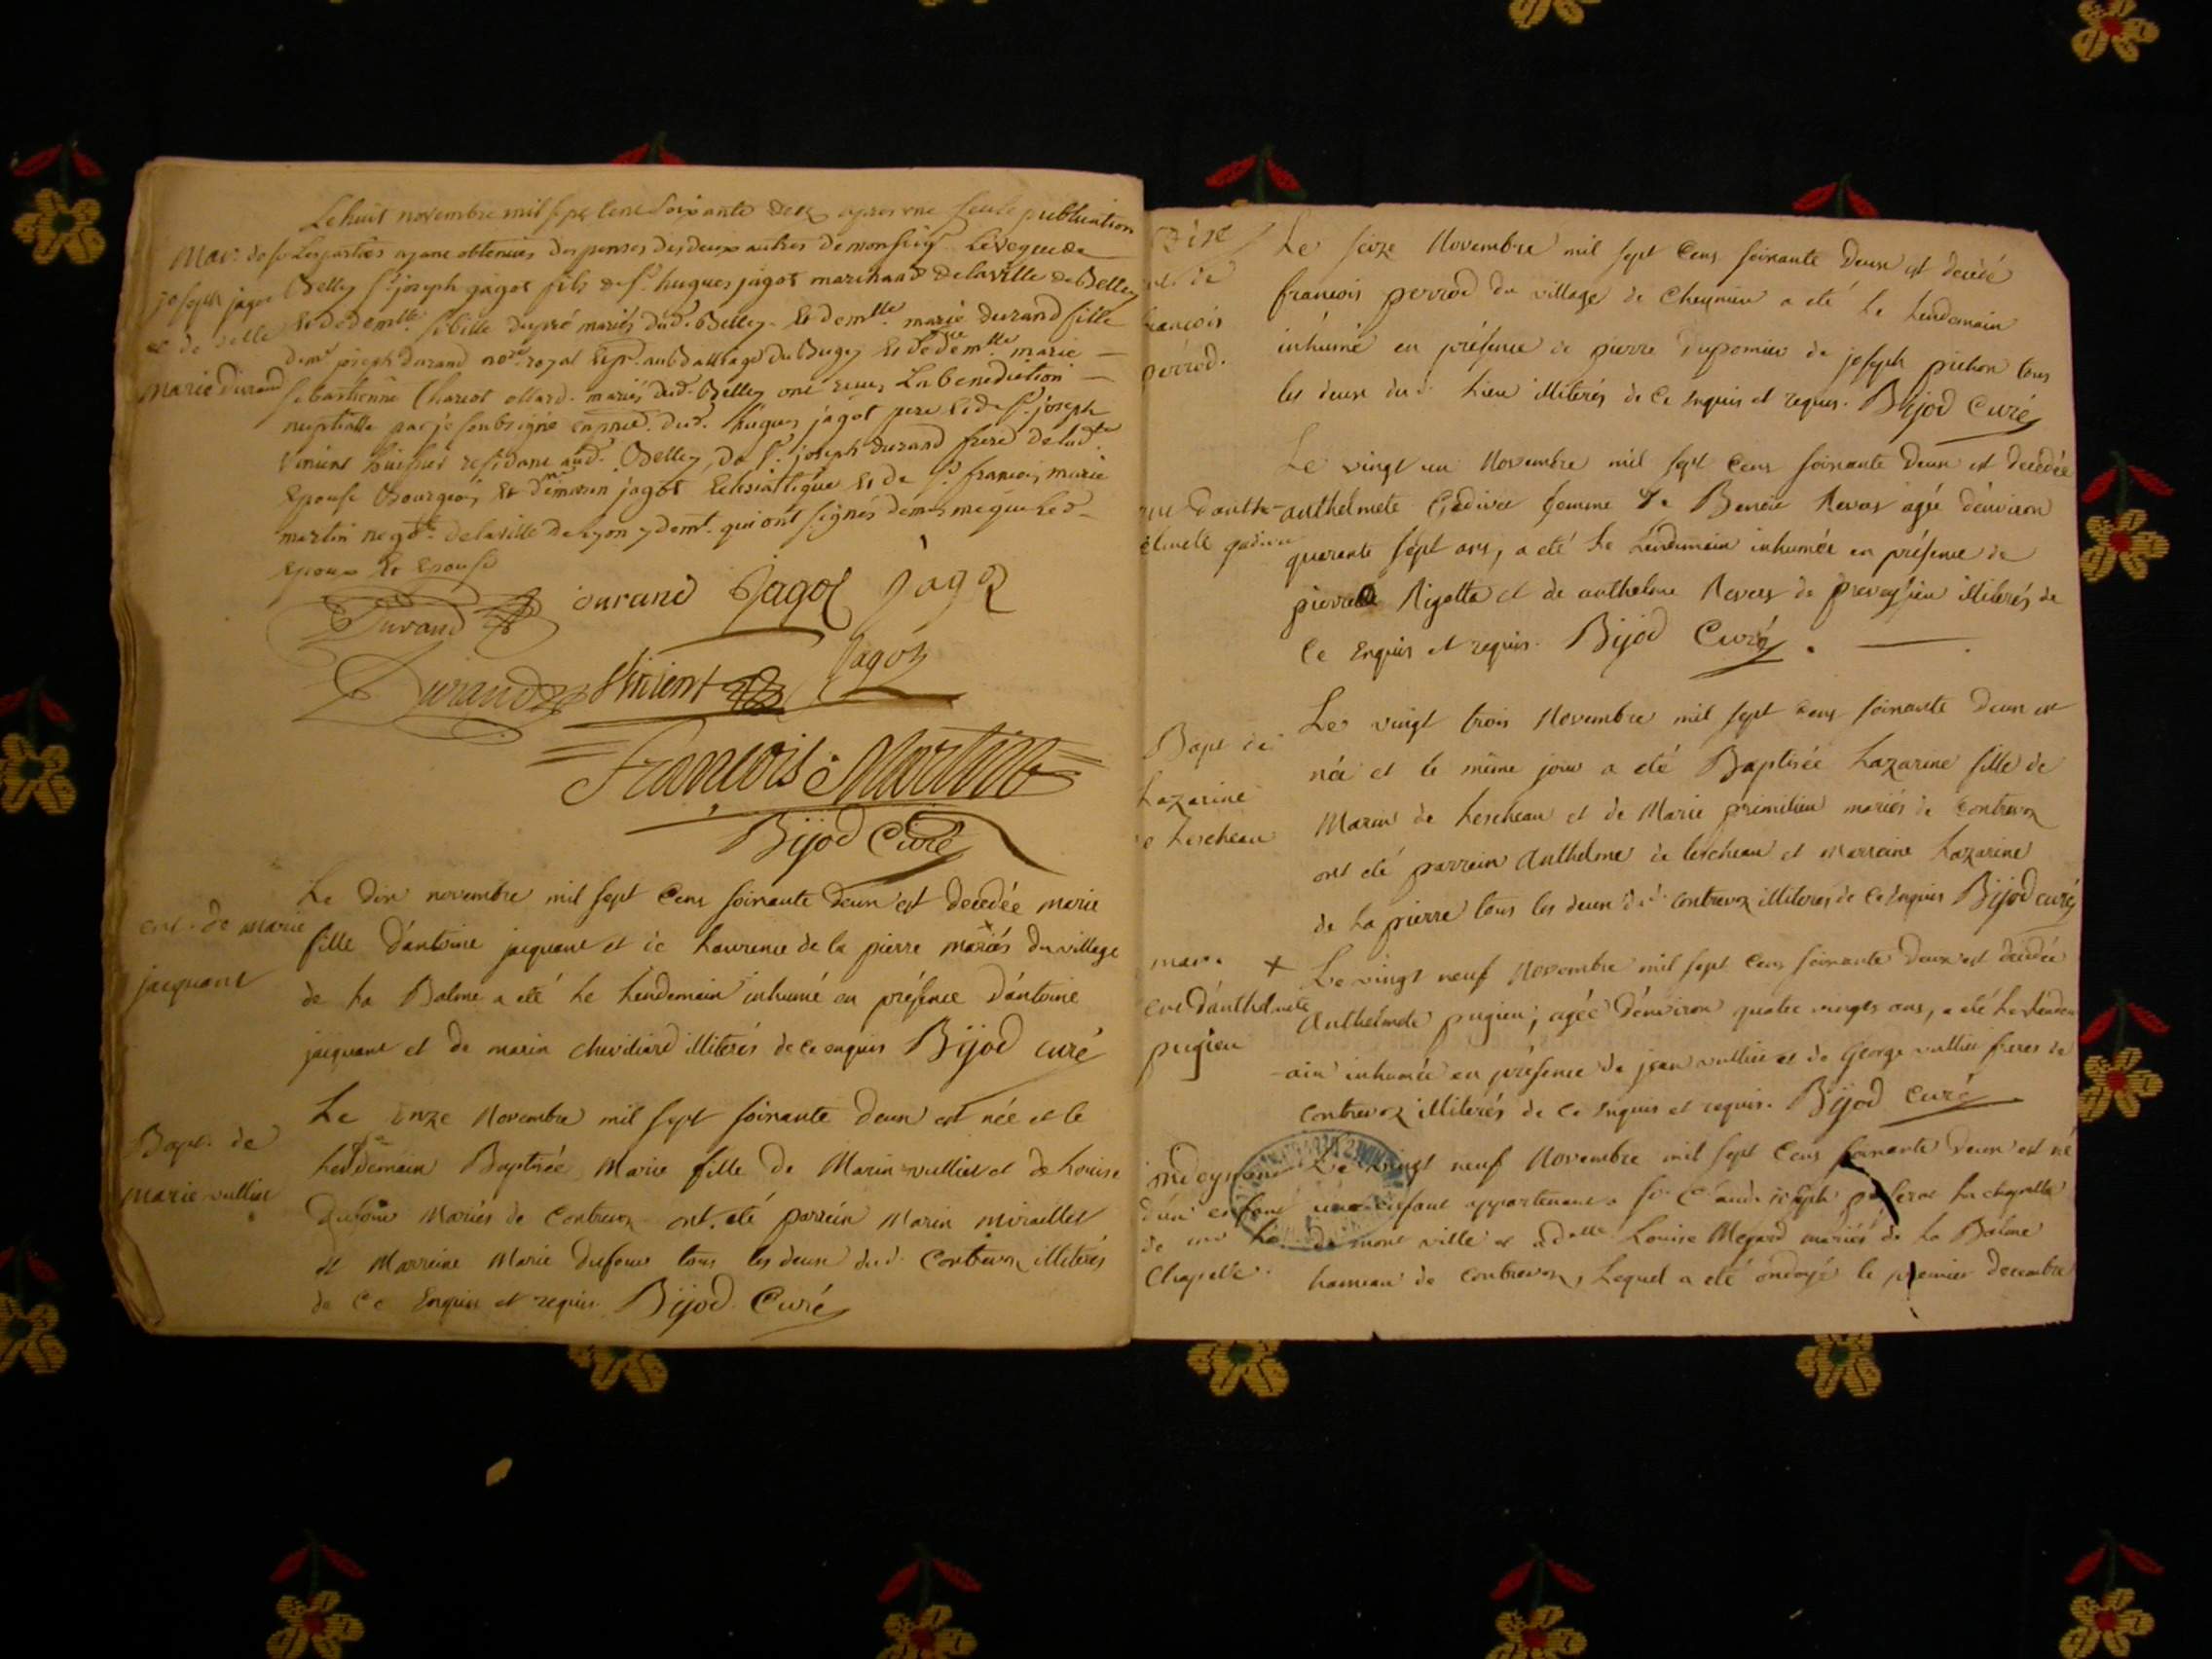 Le huit novembre mil sept cent soixante deux apres une seule publication
Mar. de Les parties ayant obtenues dispenses des deux autres de monseigr Levequede
joseph jagot Belley Sr joseph jagot fils de Sr hugues jagot marchand delaville de Belley
et de delle et de demlle Sibille dupré mariés dud. Belley. et demlle marie durand fille
Marie Durand de mr joseph durand nore royal au Balliage du Bugey et de demlle marie —
Sebastienne Charcot ollard. mariés dud. Belley ont reçus La benediction —
nuptialle par je soubsigné dud. hugues jagot pere et de Sr joseph
vinient huissier residant aud. Belley, de Sr joseph durand frere de ladte
Epouse Bourgeois, et jagot Eclesiastique et de Sr francois marie
martin negot. delaville de Lyon y demt. qui ont signés de mesme que Lesd-
Epoux et Epouse
Durand durand Jagot Jagot
Durand Vinient Jagot
Francois Martin
Bijod Curé
Le dix novembre mil sept cens soixante deux est decedée marie
ent. de marie
fille d'antoine jacquant et de Laurence de la pierre mariés du village
jacquant
de La Balme a eté Le Lendemain inhumé en présence d'antoine
jacquant et de marin chevillard illiterés de ce enquis Bijod curé
Le onze Novembre mil sept soixante deux est née et le
Bapt. de
Lendemain Baptisée Marie fille de Marin vulliet et de Louise
marie vulliet
Dufour Mariés de Contrevoz ont eté parrein Marin miraillet
et Marreine Marie Dufour tous les deux dud. Contrevoz illiterés
de Ce Enquis et requis. Bijod. Curé
Le seize Novembre mil sept Cens soixante Deux est decedé
de
francois perrod du village de Cheymieu a eté Le Lendemain
francois
inhumé en présence de pierre Dupomieu de joseph pichon tous
perrod.
les deux dud. Lieu illiterés de Ce enquis et requis. Bijod Curé
Le vingt un Novembre mil sept Cens soixante Deux est decedée
d'anthe- anthelmete Gadivet femme de Benoit Revers agée d'environ
elmete gadivet
quarente sept ans, a eté Le Lendemain inhumée en présence de
pierre Rigottet et de anthelme Revers de preveysieu illiterés de
Ce Enquis et requis. Bijod Curé. —
Le vingt trois Novembre mil sept cens soixante deux est
Bapt de
née et le même jour a eté Baptisée Lazarine fille de
Lazarine
Marin de Lescheau et de Marie primilieu mariés de Contrevoz
e Lescheau
ont eté parrein Anthelme de Lescheau et marreine Lazarine
de La pierre tous les deux dud. contrevoz illiteres de Ce Enquis Bijod curé
mar. + Le vingt neuf Novembre mil sept Cens soixante deux est decedée
ent d'anthelmete
Anthelmete pugieu, agée d'environ quatre vingts ans, a eté Le Lendem
pugieu
-ain inhumée en présence de jean vulliet et de George vulliet freres de
contrevoz illiterés de Ce Enquis et requis. Bijod Curé
Le vingt neuf Novembre mil sept Cens soixante deux est né
d'un enfant une enfant appartenant a Sr Claude joseph La chapelle
de La de mont ville et a delle Louise Megard mariés de La Balme
Chapelle. hameau de Contrevoz, Lequel a eté ondoyé le premier decembre